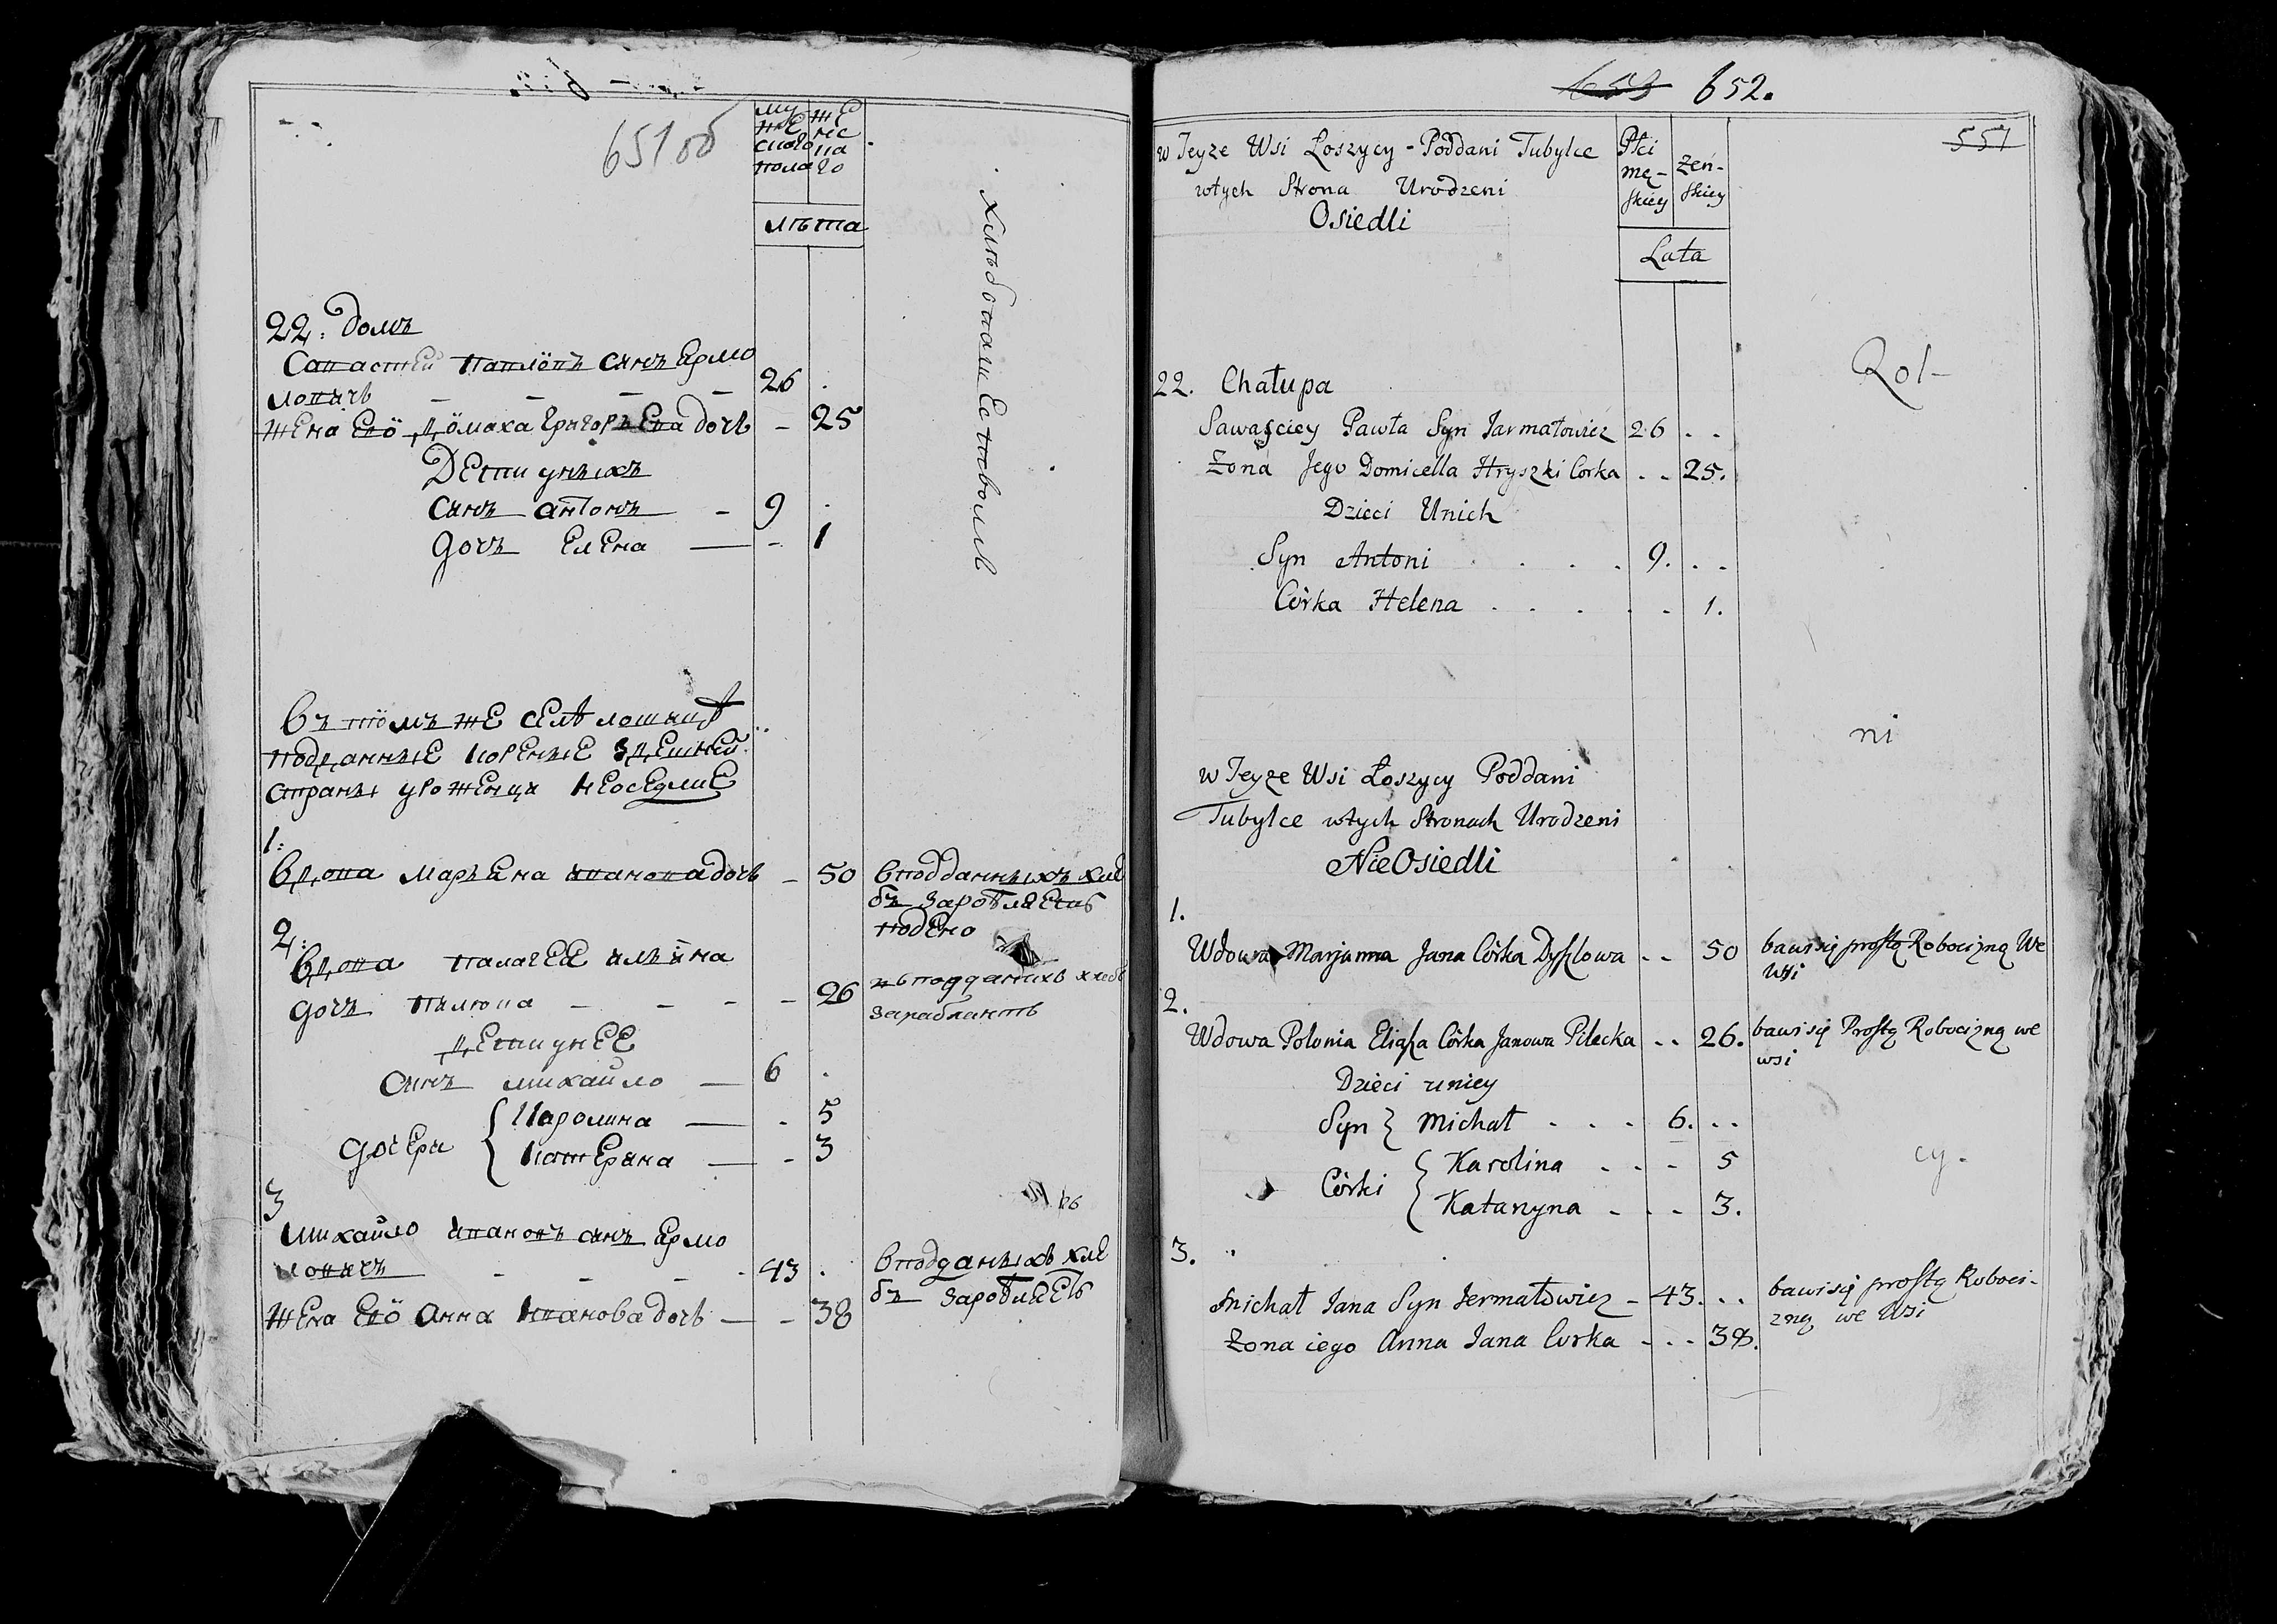 651 об
му
же
ского
пола
же
нс
ка
го
лѣта
22: домъ
Савастей Павлövъ сынъ Ермо
ловичъ 26
жена Его Домаха Григорьева дочь - 25
Дети унихъ
Сынъ антонъ - 9
дочъ Елена - 1
хлѣбопашествомъ
въ томъ же селѣ лошицѣ
подданные коренные здешней
страны уроженцы неоседлие
1:
Вдова марьяна ивановадочь - 50
в подданныхъ хле
бъ заробляетъ
подено
2:
Вдова палагея ильина
дочъ Пилюва - - - - 26
въ подданихъ хлебъ
зарабляить
дети унее
сынъ михайло — 6
дочери { Каролина — - 5
Катерина — - 3
3
михайло ивановъ сынъ Ермо
ловичъ - - - - 43
в подданыхъ хле
бъ заробляеть
жена Его Анна Ивановадочь — - 38
653 652.
557
w Teyże Wsi Łoszycy - Poddani Tubylce
wtych Strona Urodzeni
Osiedli
Płci
mę-
skiey
żeń-
skiey
Lata
22. Chałupa
Sawaściey Pawła Syn Jarmałowicz 26 . .
Żona Jego Domicella Hryszki Corka . . 25.
Dzieci Unich
Syn Antoni . . . . 9. . .
Córka Helena . . . . . 1.
Rol-
ni
cy.
w Teyże Wsi Łoszycy Poddani
Tubylce wtych Stronach Urodzeni
NieOsiedli
1.
Wdowa Marjanna Jana Córka Dyszlowa . . 50 bawi się prostą Robocizną We
Wsi
2.
Wdowa Polonia Eliasza Córka Janowa Pilecka . . 26. bawi się Prostą Robocizną we
wsi
Dzieci uniey
Syn } Michał . . . 6. . .
Córki { Karolina . . - 5
Katarzyna - . - 3.
3.
Michał Jana Syn Jermałowicz - 43. . . bawi się prostą Roboci-
zną we Wsi
Żona iego Anna Jana Corka - . - 38.